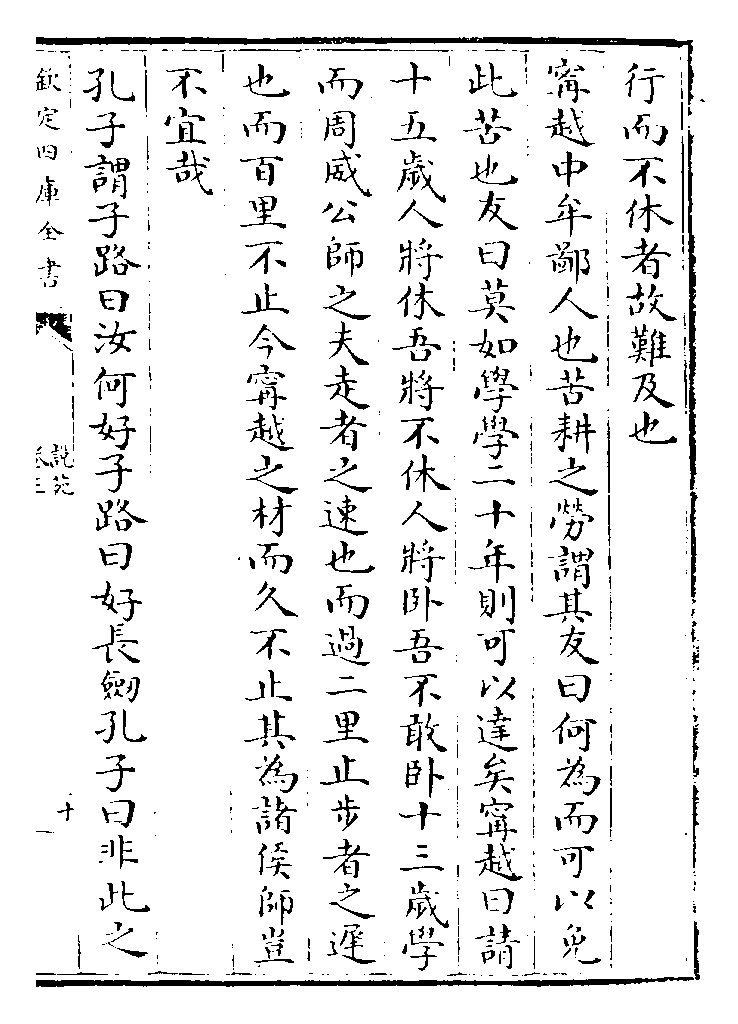 行而不休者故難及也
甯越中牟鄙人也苦耕之勞謂其友曰何為而可以免
此苦也友曰莫如學學二十年則可以達矣甯越曰請
十五歲人將休吾將不休人將卧吾不敢卧十三歲學
而周威公師之夫走者之速也而過二里止步者之遲
也而百里不止今甯越之材而久不止其為諸侯師豈
不宜哉
孔子謂子路曰汝何好子路曰好長劔孔子曰非此之
欽定四庫全書
說苑
卷三
十